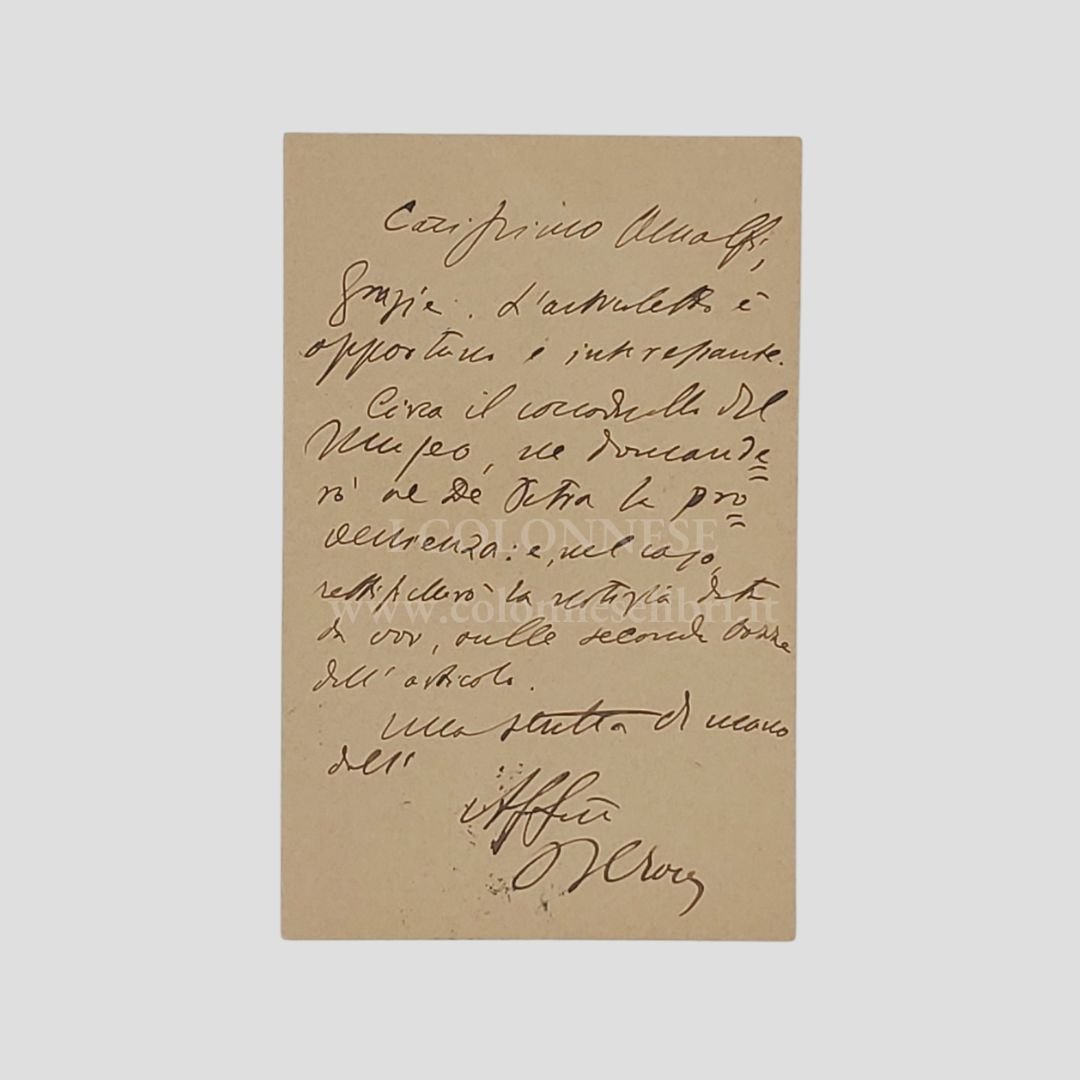 Carissimo Amalfi,
grazie. L'articoletto è
opportuno e interessante.
Circa il coccodrillo del
Museo, ne domande=
rò al De Petra la pro=
venienza: e, nel caso,
rettificherò la notizia data
da voi, sulle seconde bozze
dell'articolo.
Una stretta di mano
dall'
Aff.mo
BCroce
I COLONNESE
www.colonneselibri.it